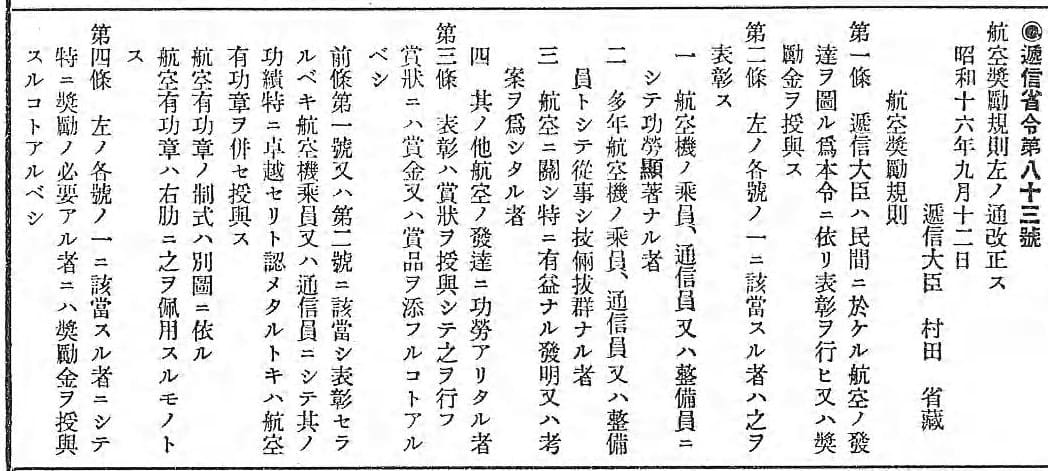 ◉遞信省令第八十三號
航空奬勵規則左ノ通改正ス
昭和十六年九月十二日
遞信大臣　村田　省藏
航空奬勵規則
第一條　遞信大臣ハ民間ニ於ケル航空ノ發
達ヲ圖ル爲本令ニ依リ表彰ヲ行ヒ又ハ奬
勵金ヲ授與ス
第二條　左ノ各號ノ一ニ該當スル者ハ之ヲ
表彰ス
一　航空機ノ乘員、通信員又ハ整備員ニ
シテ功勞顯著ナル者
二　多年航空機ノ乘員、通信員又ハ整備
員トシテ從事シ技倆拔群ナル者
三　航空ニ關シ特ニ有益ナル發明又ハ考
案ヲ爲シタル者
四　其ノ他航空ノ發達ニ功勞アリタル者
第三條　表彰ハ賞狀ヲ授與シテ之ヲ行フ
賞狀ニハ賞金又ハ賞品ヲ添フルコトアル
ベシ
前條第一號又ハ第二號ニ該當シ表彰セラ
ルベキ航空機乘員又ハ通信員ニシテ其ノ
功績特ニ卓越セリト認メタルトキハ航空
有功章ヲ併セ授與ス
航空有功章ノ制式ハ別圖ニ依ル
航空有功章ハ右肋ニ之ヲ佩用スルモノト
ス
第四條　左ノ各號ノ一ニ該當スル者ニシテ
特ニ奬勵ノ必要アル者ニハ奬勵金ヲ授與
スルコトアルベシ